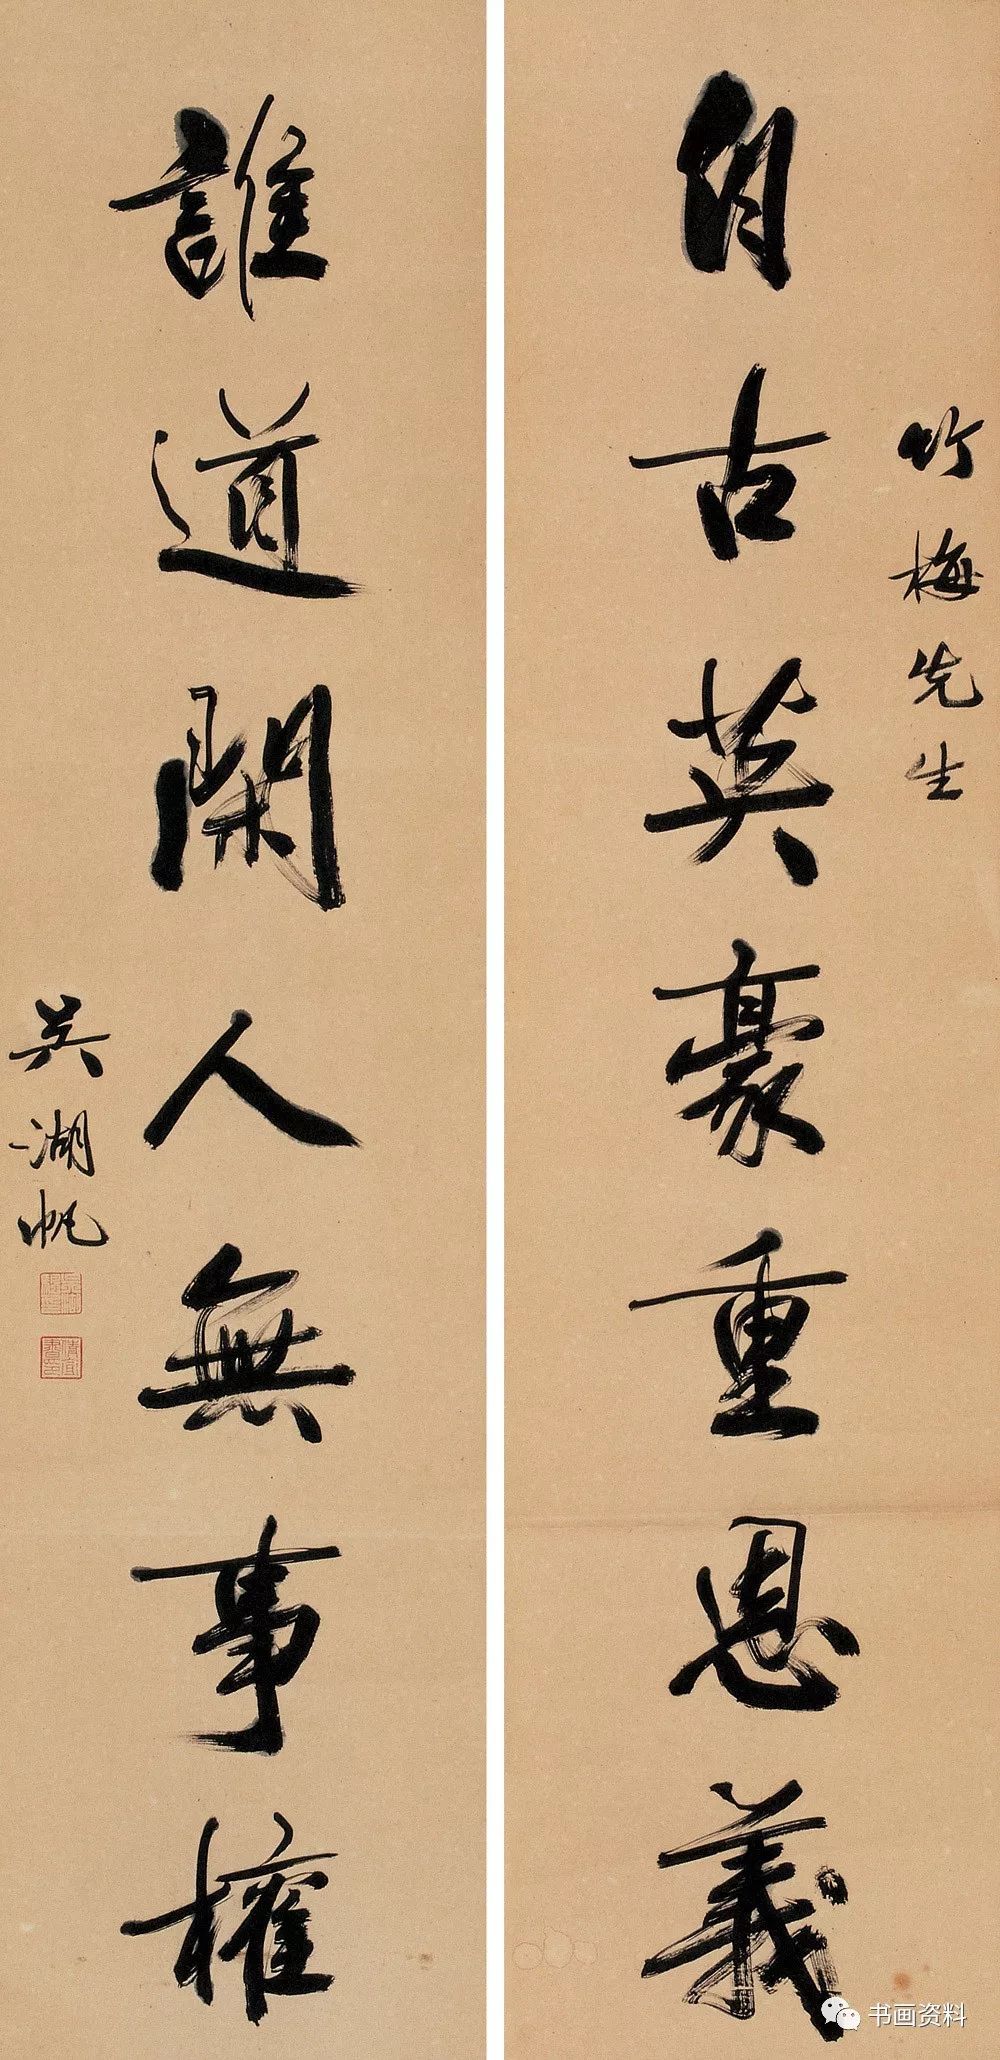 竹梅先生
自古英豪重恩義
誰道閑人無事權
吴湖帆
书画资料